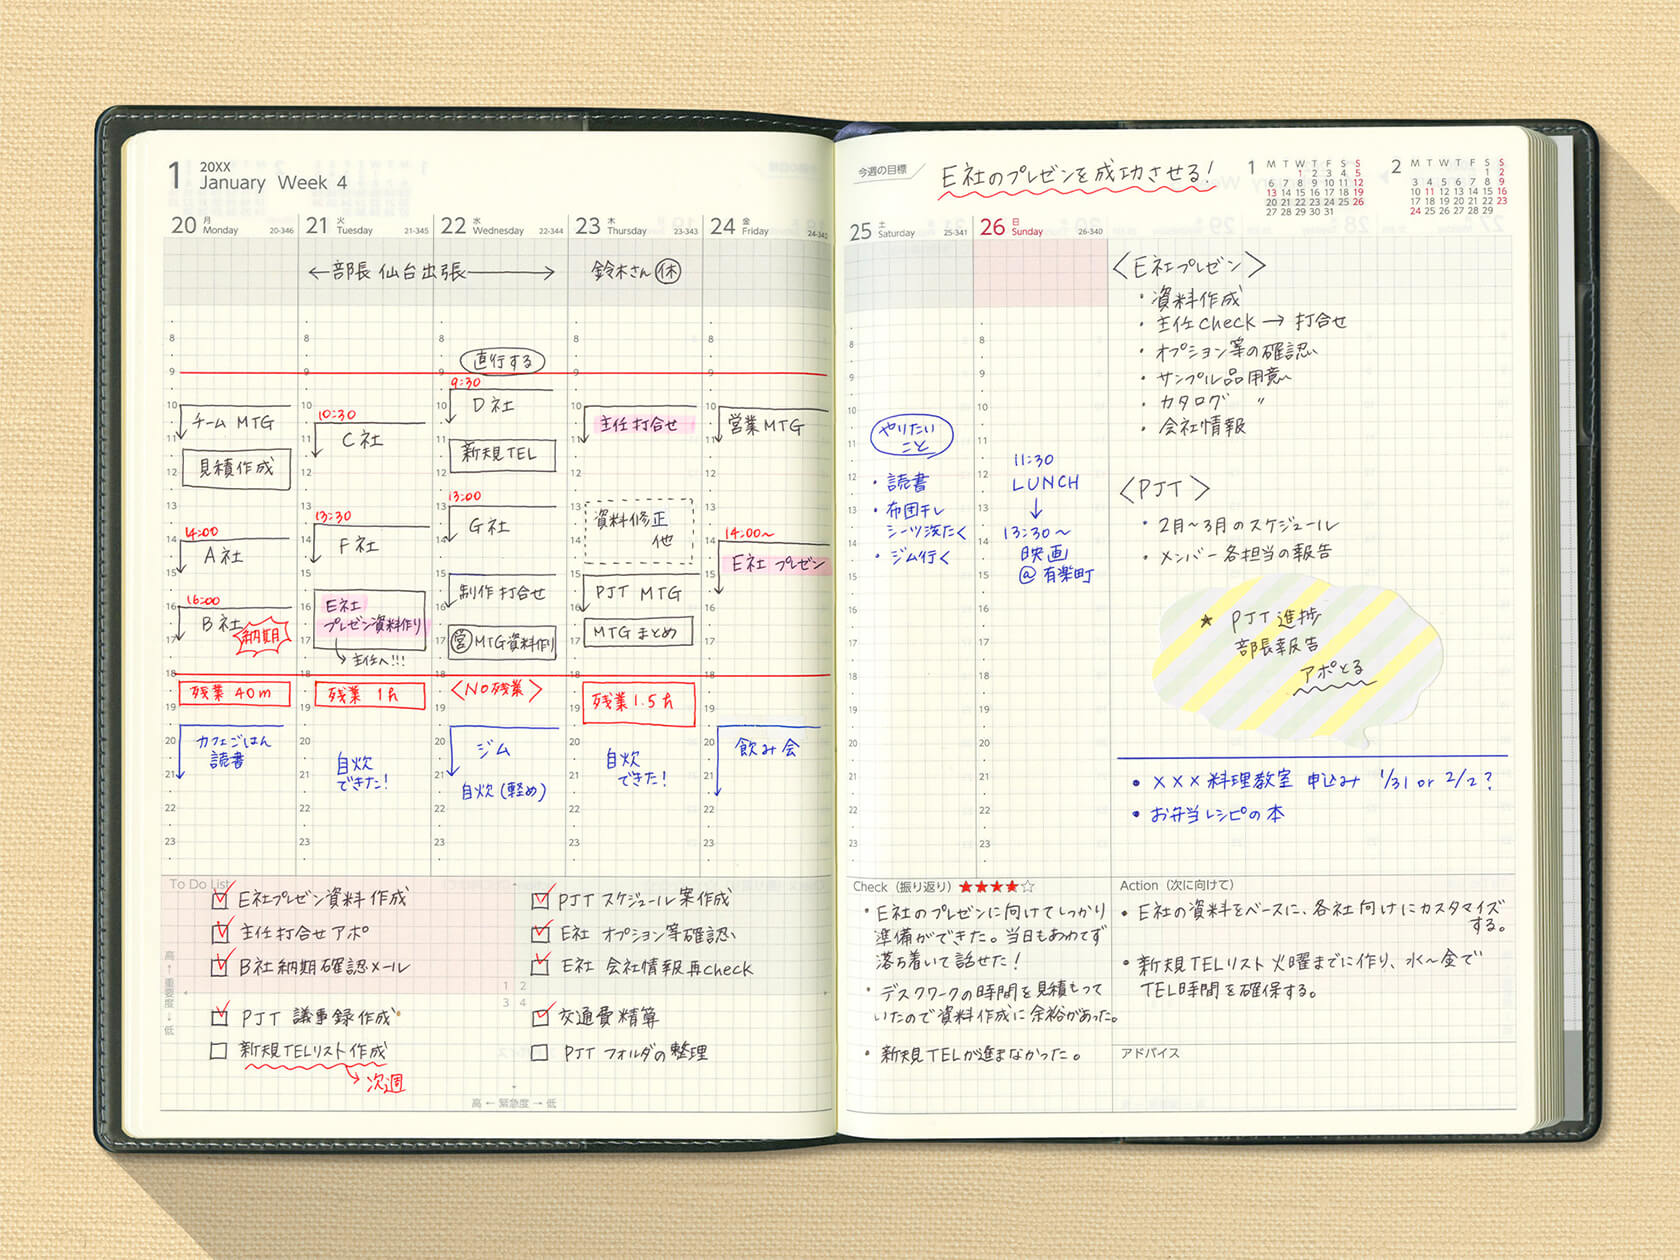 1 20XX
January Week 4
20 月 Monday 20-346
21 火 Tuesday 21-345
22 水 Wednesday 22-344
23 木 Thursday 23-343
24 金 Friday 24-342
←部長 仙台出張→
鈴木さん 休
8
9
10
11
12
13
14
15
16
17
18
19
20
21
22
23
チーム MTG
見積作成
14:00
A社
16:00
B社
納期
残業 40m
カフェごはん
読書
10:30
C社
13:30
F社
E社
プレゼン資料作り
主任へ!!!
残業 1h
自炊
できた!
直行する
9:30
D社
新規TEL
13:00
G社
制作打合せ
営 MTG資料作り
<NO残業>
ジム
自炊(軽め)
主任打合せ
資料修正
他
PJT MTG
MTGまとめ
残業1.5h
自炊
できた!
営業MTG
14:00~
E社 プレゼン
飲み会
To Do List
E社プレゼン資料作成
主任打合せアポ
B社納期確認メール
PJT 議事録作成
新規TELリスト作成
次週
PJTスケジュール案作成
E社 オプション等確認
E社 会社情報再check
交通費精算
PJTフォルダの整理
1 2
3 4
高 ↑ 重要度 ↓ 低
高 ← 緊急度 → 低
今週の目標
E社のプレゼンを成功させる!
1
M T W T F S S
1 2 3 4 5
6 7 8 9 10 11 12
13 14 15 16 17 18 19
20 21 22 23 24 25 26
27 28 29 30 31
2
M T W T F S S
1 2
3 4 5 6 7 8 9
10 11 12 13 14 15 16
17 18 19 20 21 22 23
24 25 26 27 28 29
25 土 Saturday 25-341
26 日 Sunday 26-340
8
9
10
11
12
13
14
15
16
17
18
19
20
21
22
23
やりたい
こと
・読書
・布団干し
シーツ洗たく
・ジム行く
11:30
LUNCH
↓
13:30~
映画
@有楽町
<E社プレゼン>
・資料作成
・主任check → 打合せ
・オプション等の確認
・サンプル品用意
・カタログ 〃
・会社情報
<PJT>
・2月~3月のスケジュール
・メンバー各担当の報告
★ PJT進捗
部長報告
アポとる
・×××料理教室 申込み 1/31 or 2/2?
・お弁当レシピの本
Check(振り返り)★★★★☆
・E社のプレゼンに向けてしっかり
準備ができた。当日もあわてず
落ち着いて話せた!
・デスクワークの時間を見積もって
いたので資料作成に余裕があった。
・新規TELが進まなかった。
Action(次に向けて)
・E社の資料をベースに、各社向けにカスタマイズ
する。
・新規TELリスト火曜までに作り、水~金で
TEL時間を確保する。
アドバイス